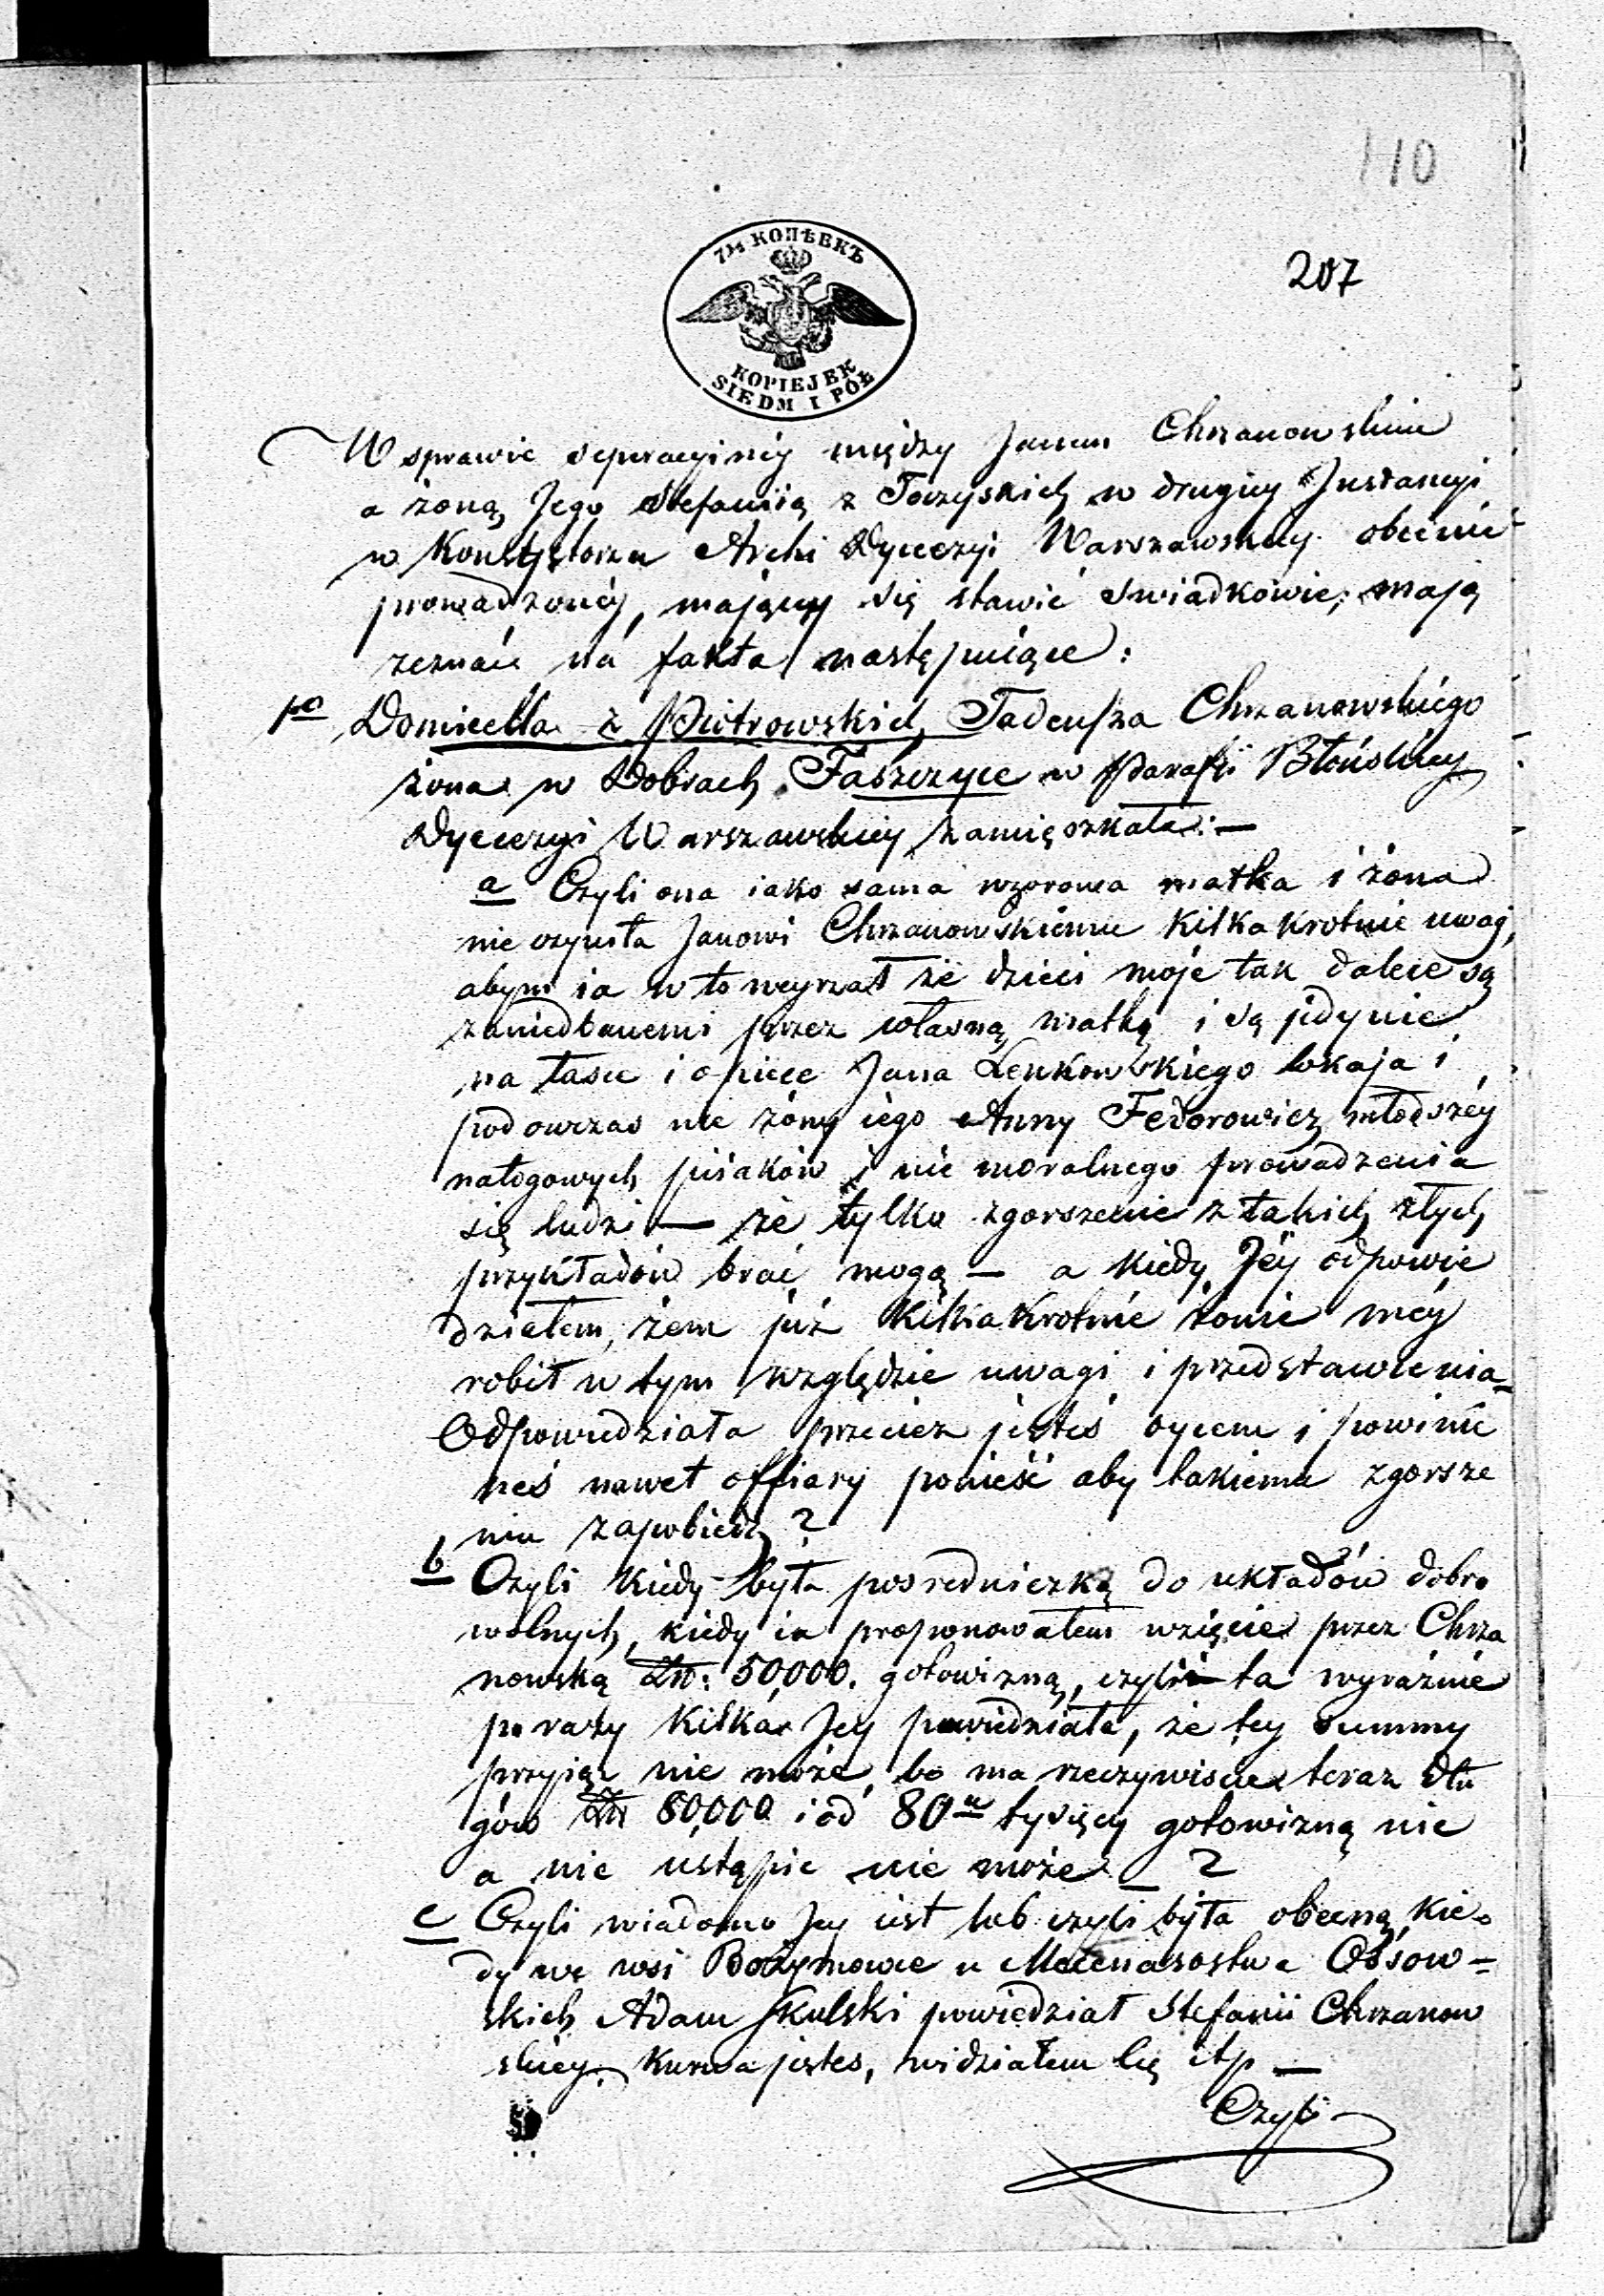 110
207
7½ КОПѢЕКЪ
KOPIEJEK
SIEDM I PÓŁ
W sprawie seperacyinéy między Janem Chrzanowskim
a żoną Jego Stefaniią z Toczyskich w drugiéy Instancyi
w Konsystorzu Archi Dyecezyi Warszawskiéy obecnie
prowadzonéy, maiący się stawić Swiadkowie, mają
zeznać na fakta następuiące:
1o Domicella z Piotrowskich Tadeusza Chrzanowskiego
żona w Dobrach Faszczyce w Parafii Błońskiey
Dyecezyi Warszawskiey zamięszkała: —
a Czyli ona iako sama wzorowa matka i żona
nie czyniła Janowi Chrzanowskiemu kilkakrotnie uwag,
abym ia w to weyrzał że dzieci moje tak dalece są
zaniedbanemi przez własną matkę i są jedynie
na łasce i opiece Jana Lenkowskiego lokaja i
podowczas nie żony iego Anny Fedorowicz młodszéy
nałogowych piiaków i nie moralnego prowadzenia
się ludzi — że tylko zgorszenie z takich złych
przykładów brać mogą — a kiedy Jéy odpowie
działem, żem już kilkakrotnie żonie méy
robił w tym względzie uwagi i przedstawienia –
Odpowiedziała przecież jesteś oycem i powinie
neś nawet offiary ponieść aby takiemu zgorsze
niu zapobiedz ?
b Czyli kiedy była posredniczką do układów dobro
wolnych, kiedy ia proponowałem wzięcie przez Chrza
nowską Złt: 50,000. gotowizną, czyli ta wyraźnie
po razy kilka Jey powiedziała, że tey summy
przyiąć nie może, bo ma rzeczywiscie teraz dłu
gów Złt 80,000 i od 80u tysięcy gotowizną nie
a nie ustąpić nie może — ?
c Czyli wiadomo Jey iest lub czyli była obecną kie=
dy we wsi Bożymowie u Mecenasostwa Ossow=
skich Adam Skulski powiedział Stefanii Chrzanow
skiey. Kurwa jestes, widziałem cię itp —
Czyli